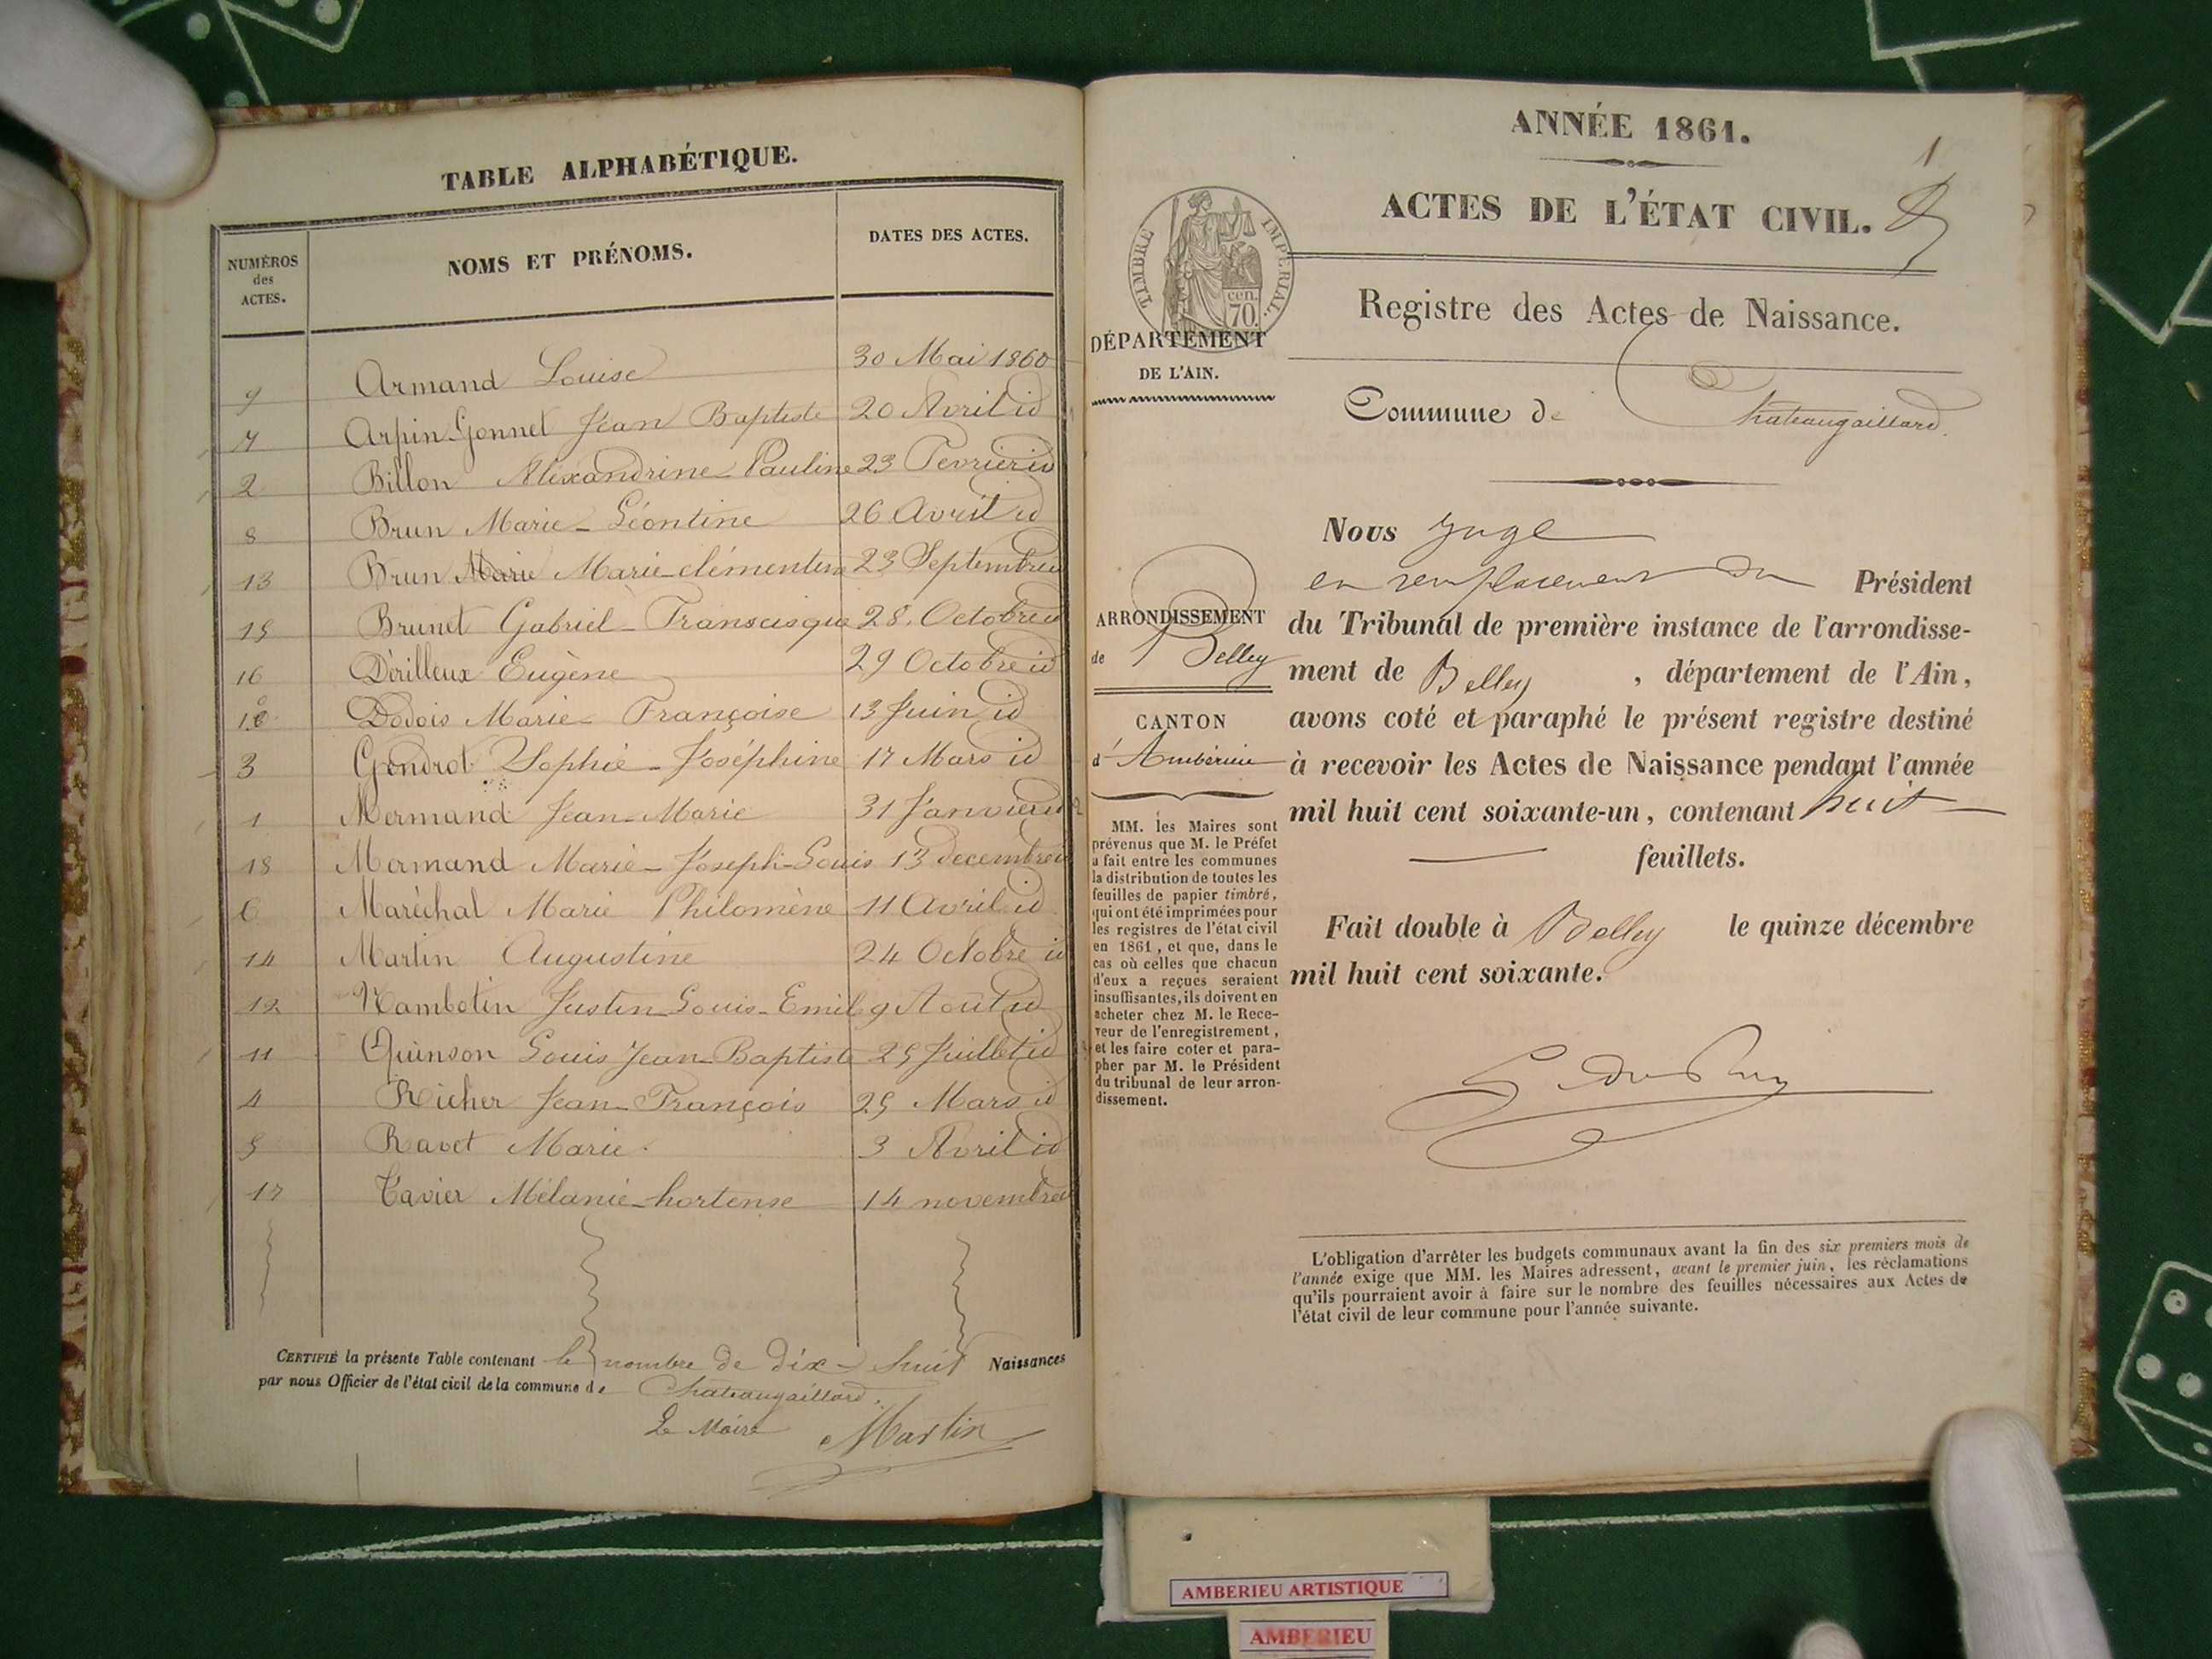 TABLE ALPHABÉTIQUE.
NUMÉROS des ACTES. NOMS ET PRÉNOMS. DATES DES ACTES.
9 Armand Louise 30 Mai 1860
7 Arpin-Gonnet Jean Baptiste 20 Avril id
2 Billon Alexandrine Pauline 23 Fevrier id
8 Brun Marie-Léontine 26 Avril id
13 Brun Marie Marie-clémentine 23 Septembre id
15 Brunet Gabriel-Franscisque 28 Octobre id
16 Dérilleux Eugène 29 Octobre id
10 Dodois Marie-Françoise 13 Juin id
3 Gondrot Sophie-Joséphine 17 Mars id
1 Mermand Jean-Marie 31 Janvier id
18 Mermand Marie-Joseph-Louis 13 decembre id
6 Maréchal Marie Philomène 11 Avril id
14 Martin Augustine 24 Octobre id
12 Nambotin Justin-Louis-Emile 9 Aout id
11 Quinson Louis Jean-Baptiste 25 Juillet id
4 Richer Jean-François 25 Mars id
5 Ravet Marie 3 Avril id
17 Tavier Mélanie-hortense 14 novembre id
CERTIFIÉ la présente Table contenant le nombre de dix-huit Naissances
par nous Officier de l'état civil de la commune de Chateaugaillard.
Le Maire Martin
ANNÉE 1861.
1
ACTES DE L'ÉTAT CIVIL.
TIMBRE IMPÉRIAL.
cen.
70.
Registre des Actes de Naissance.
DÉPARTEMENT
DE L'AIN.
Commune de Chateaugaillard.
ARRONDISSEMENT
de Belley
CANTON
d'Ambérieu
MM. les Maires sont
prévenus que M. le Préfet
a fait entre les communes
la distribution de toutes les
feuilles de papier timbré,
qui ont été imprimées pour
les registres de l'état civil
en 1861, et que, dans le
cas où celles que chacun
d'eux a reçues seraient
insuffisantes, ils doivent en
acheter chez M. le Rece-
veur de l'enregistrement,
et les faire coter et para-
pher par M. le Président
du tribunal de leur arron-
dissement.
Nous Juge
en remplacement du Président
du Tribunal de première instance de l'arrondisse-
ment de Belley, département de l'Ain,
avons coté et paraphé le présent registre destiné
à recevoir les Actes de Naissance pendant l'année
mil huit cent soixante-un, contenant huit
feuillets.
Fait double à Belley le quinze décembre
mil huit cent soixante.
L'obligation d'arrêter les budgets communaux avant la fin des six premiers mois de
l'année exige que MM. les Maires adressent, avant le premier juin, les réclamations
qu'ils pourraient avoir à faire sur le nombre des feuilles nécessaires aux Actes de
l'état civil de leur commune pour l'année suivante.
AMBERIEU ARTISTIQUE
AMBERIEU